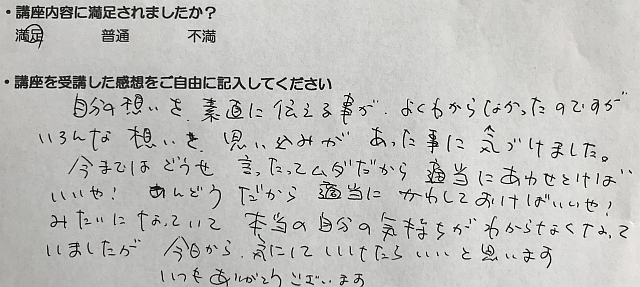 ・講座内容に満足されましたか？
満足 普通 不満
・講座を受講した感想をご自由に記入してください
自分の想いを、素直に伝える事が、よくわからなかったのですが
いろんな想いを、思い込みが あった事に 気づけました。
今までは どうせ 言ったってムダだから 適当にあわせとけば
いいや！ めんどう だから 適当に かわしておけばいいや！
みたいになっていて 本当の自分の気持ちがわからなくなって
いましたが 今日から、気にして いけたら いいと思います
いつもありがとうございます